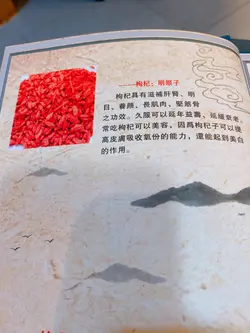 ——枸杞：明眼子
枸杞具有滋補肝腎、明
目、養顏、長肌肉、堅筋骨
之功效。久服可以延年益壽、延緩衰老。
常吃枸杞可以美容，因爲枸杞子可以提
高皮膚吸收氧份的能力，還能起到美白
的作用。